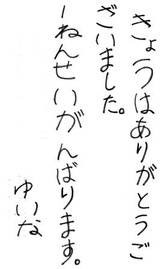 きょうはありがとうご
ざいました。
一ねんせいがんばります。
ゆいな